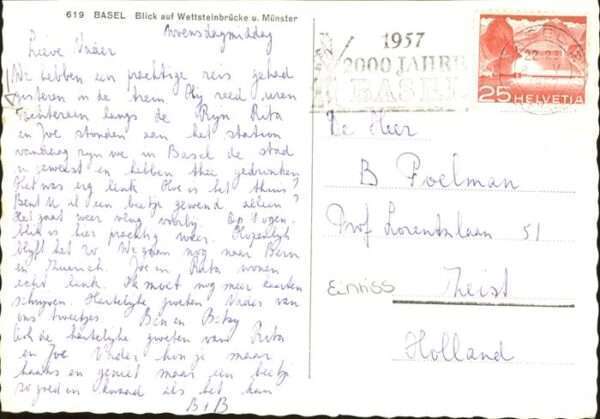 619 BASEL Blick auf Wettsteinbrücke u. Münster
Woensdagmiddag
Lieve Vader
We hebben een prachtige reis gehad
gisteren in de trein Hy reed uren
achtereen langs de Ryn Rita
en Joe stonden aan het station
vandaag zyn we in Basel de stad
in geweest en hebben thee gedronken
Het was erg leuk Hoe is het thuis?
Bent U al een beetje gewend alleen?
Het gaat weer vlug voorby. Op 't ogen-
blik is hier prachtig weer. Hopenlyk
blyft het zo. We gaan nog naar Bern
en Zuerich. Joe en Rita wonen
echt leuk. Ik moet nog meer kaarten
schryven. Hartelyke groeten Vader van
ons tweetjes Ben en Betsy
Ook de hartelyke groeten van Rita
en Joe Vader hou je maar
haaks en geniet maar een beetje
zo goed en kwaad als het kan
B+B
1957
2000 JAHRE
BASEL
25 HELVETIA
De Heer
B Poelman
Prof Lorentzlaan 51
Einriss
Zeist
Holland